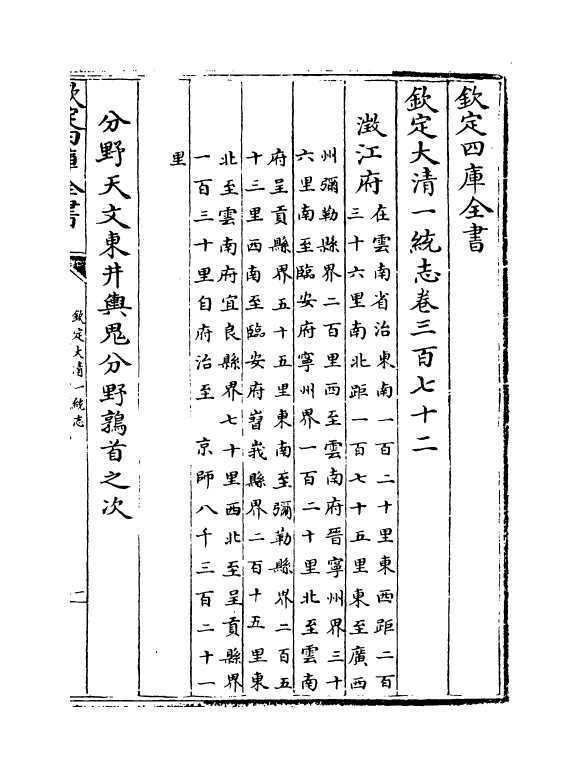 欽定四庫全書
欽定大清一統志卷三百七十二
澂江府
在雲南省治東南一百二十里東西距二百
三十六里南北距一百七十五里東至廣西
州彌勒縣界二百里西至雲南府晉寧州界三十
六里南至臨安府寧州界一百二十里北至雲南
府呈貢縣界五十五里東南至彌勒縣界二百五
十三里西南至臨安府嶍峩縣界二百十五里東
北至雲南府宜良縣界七十里西北至呈貢縣界
一百三十里自府治至　京師八千三百二十一
里
分野天文東井輿鬼分野鶉首之次
欽定四庫全書
欽定大清一統志